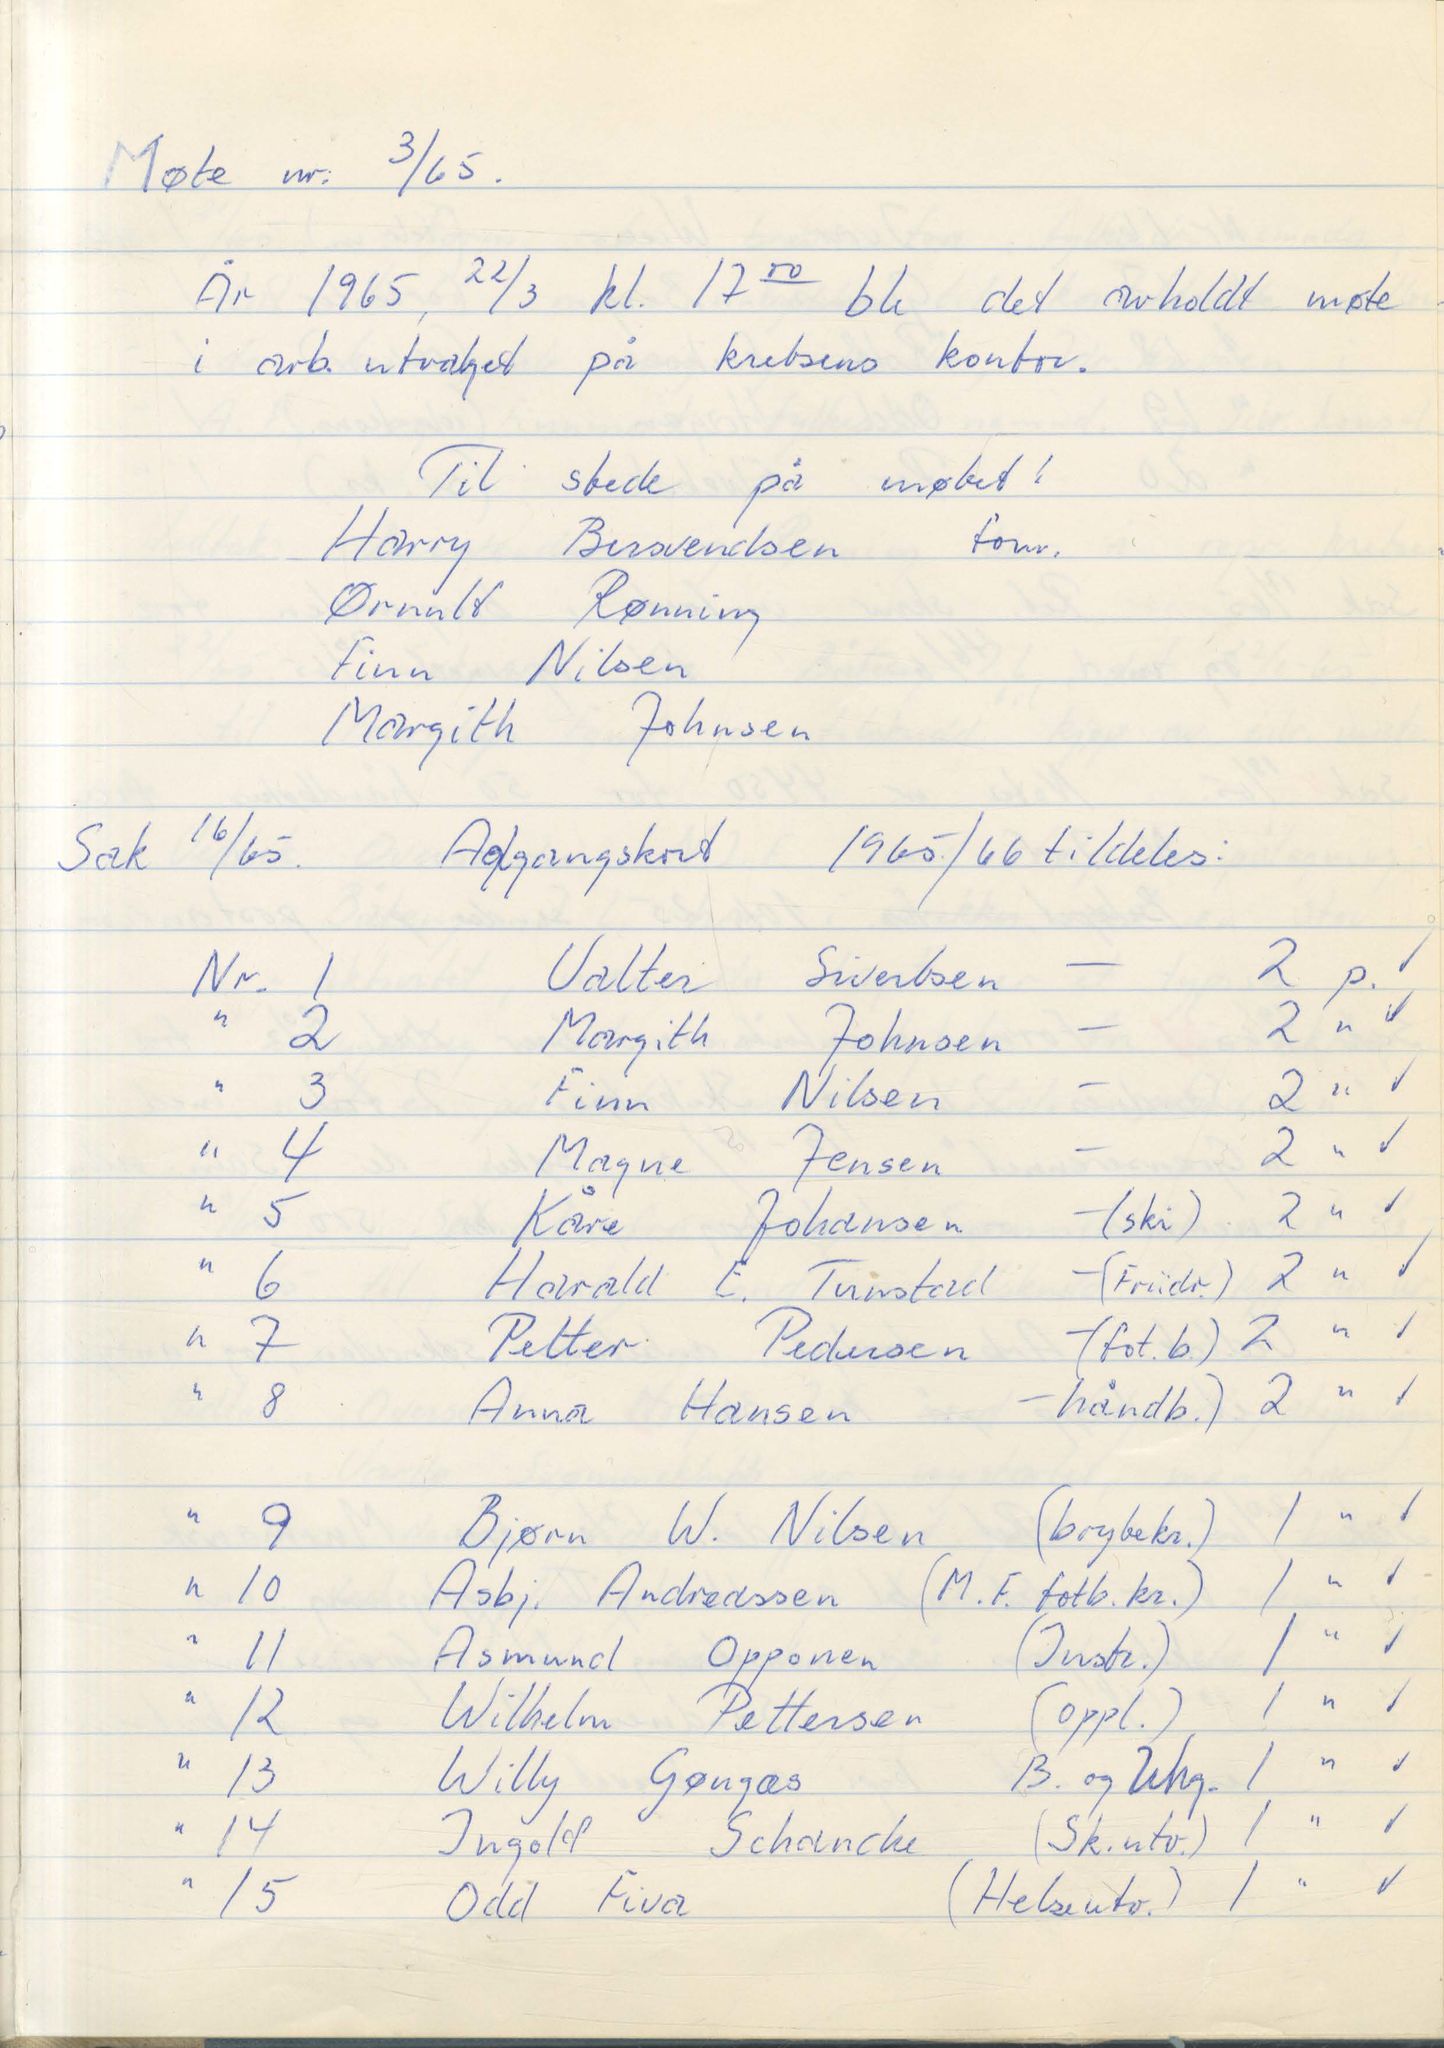 Møte nr: 3/65.
År 1965, 22/3 kl. 17⁰⁰ ble det avholdt møte
i arb. utvalget på kretsens kontor.
Til stede på møtet!
Harry Bersvendsen form.
Ørnulf Rønning
Finn Nilsen
Margith Johnsen
Sak 16/65. Adgangskort 1965/66 tildeles:
Nr. 1 Valter Sivertsen — 2 p. ✓
" 2 Margith Johnsen — 2 " ✓
" 3 Finn Nilsen — 2 " ✓
" 4 Magne Jensen — 2 " ✓
" 5 Kåre Johansen —(ski) 2 " ✓
" 6 Harald E. Tunstad —(Friidr.) 2 " ✓
" 7 Petter Pedersen —(fot.b.) 2 " ✓
" 8 Anna Hansen —håndb.) 2 " ✓
" 9 Bjørn W. Nilsen (brytekr.) 1 " ✓
" 10 Asbj. Andreassen (M.F. fotb.kr.) 1 " ✓
" 11 Asmund Opponen (Instr.) 1 " ✓
" 12 Wilhelm Pettersen (oppl.) 1 " ✓
" 13 Willy Gøngas B. og 1 " ✓
" 14 Ingolf Schancke (Sk.utv.) 1 " ✓
" 15 Odd Fiva (Helseutv.) 1 " ✓